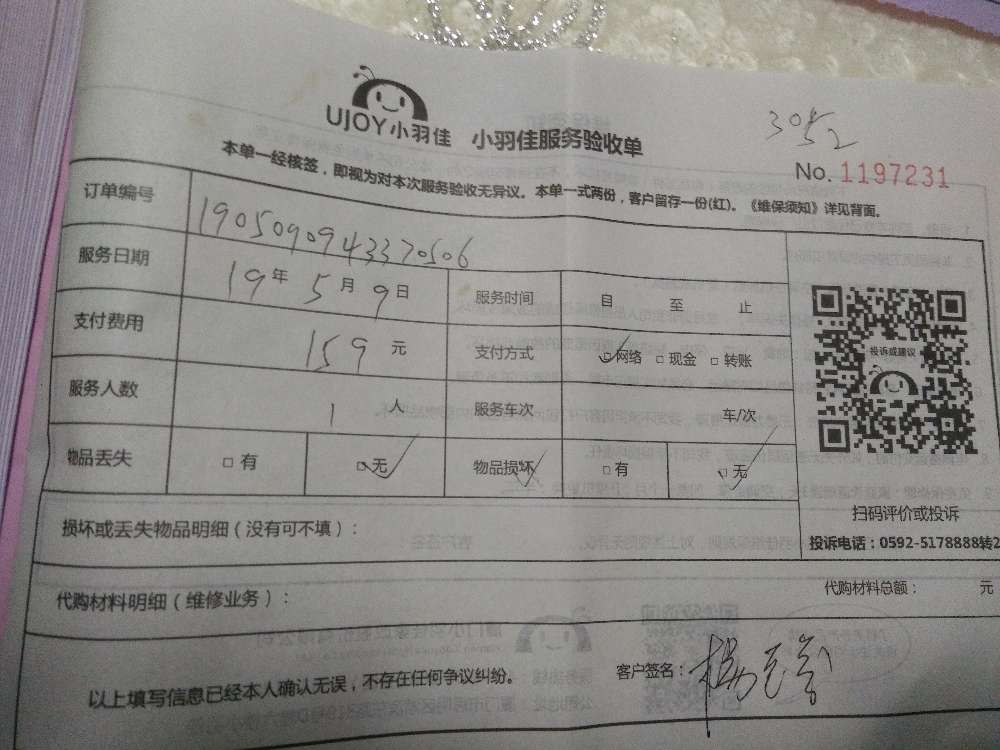 3052
UJOY小羽佳 小羽佳服务验收单
No. 1197231
本单一经核签，即视为对本次服务验收无异议。本单一式两份，客户留存一份(红)。《维保须知》详见背面。
订单编号 1905090943370506
服务日期 19年5月9日 服务时间 自 至 止
支付费用 159元 支付方式 □网络 □现金 □转账
服务人数 1人 服务车次 车/次
物品丢失 □有 □无 物品损坏 □有 □无
投诉或建议
扫码评价或投诉
投诉电话：0592-5178888转2
损坏或丢失物品明细（没有可不填）：
代购材料明细（维修业务）： 代购材料总额： 元
以上填写信息已经本人确认无误，不存在任何争议纠纷。 客户签名：杨